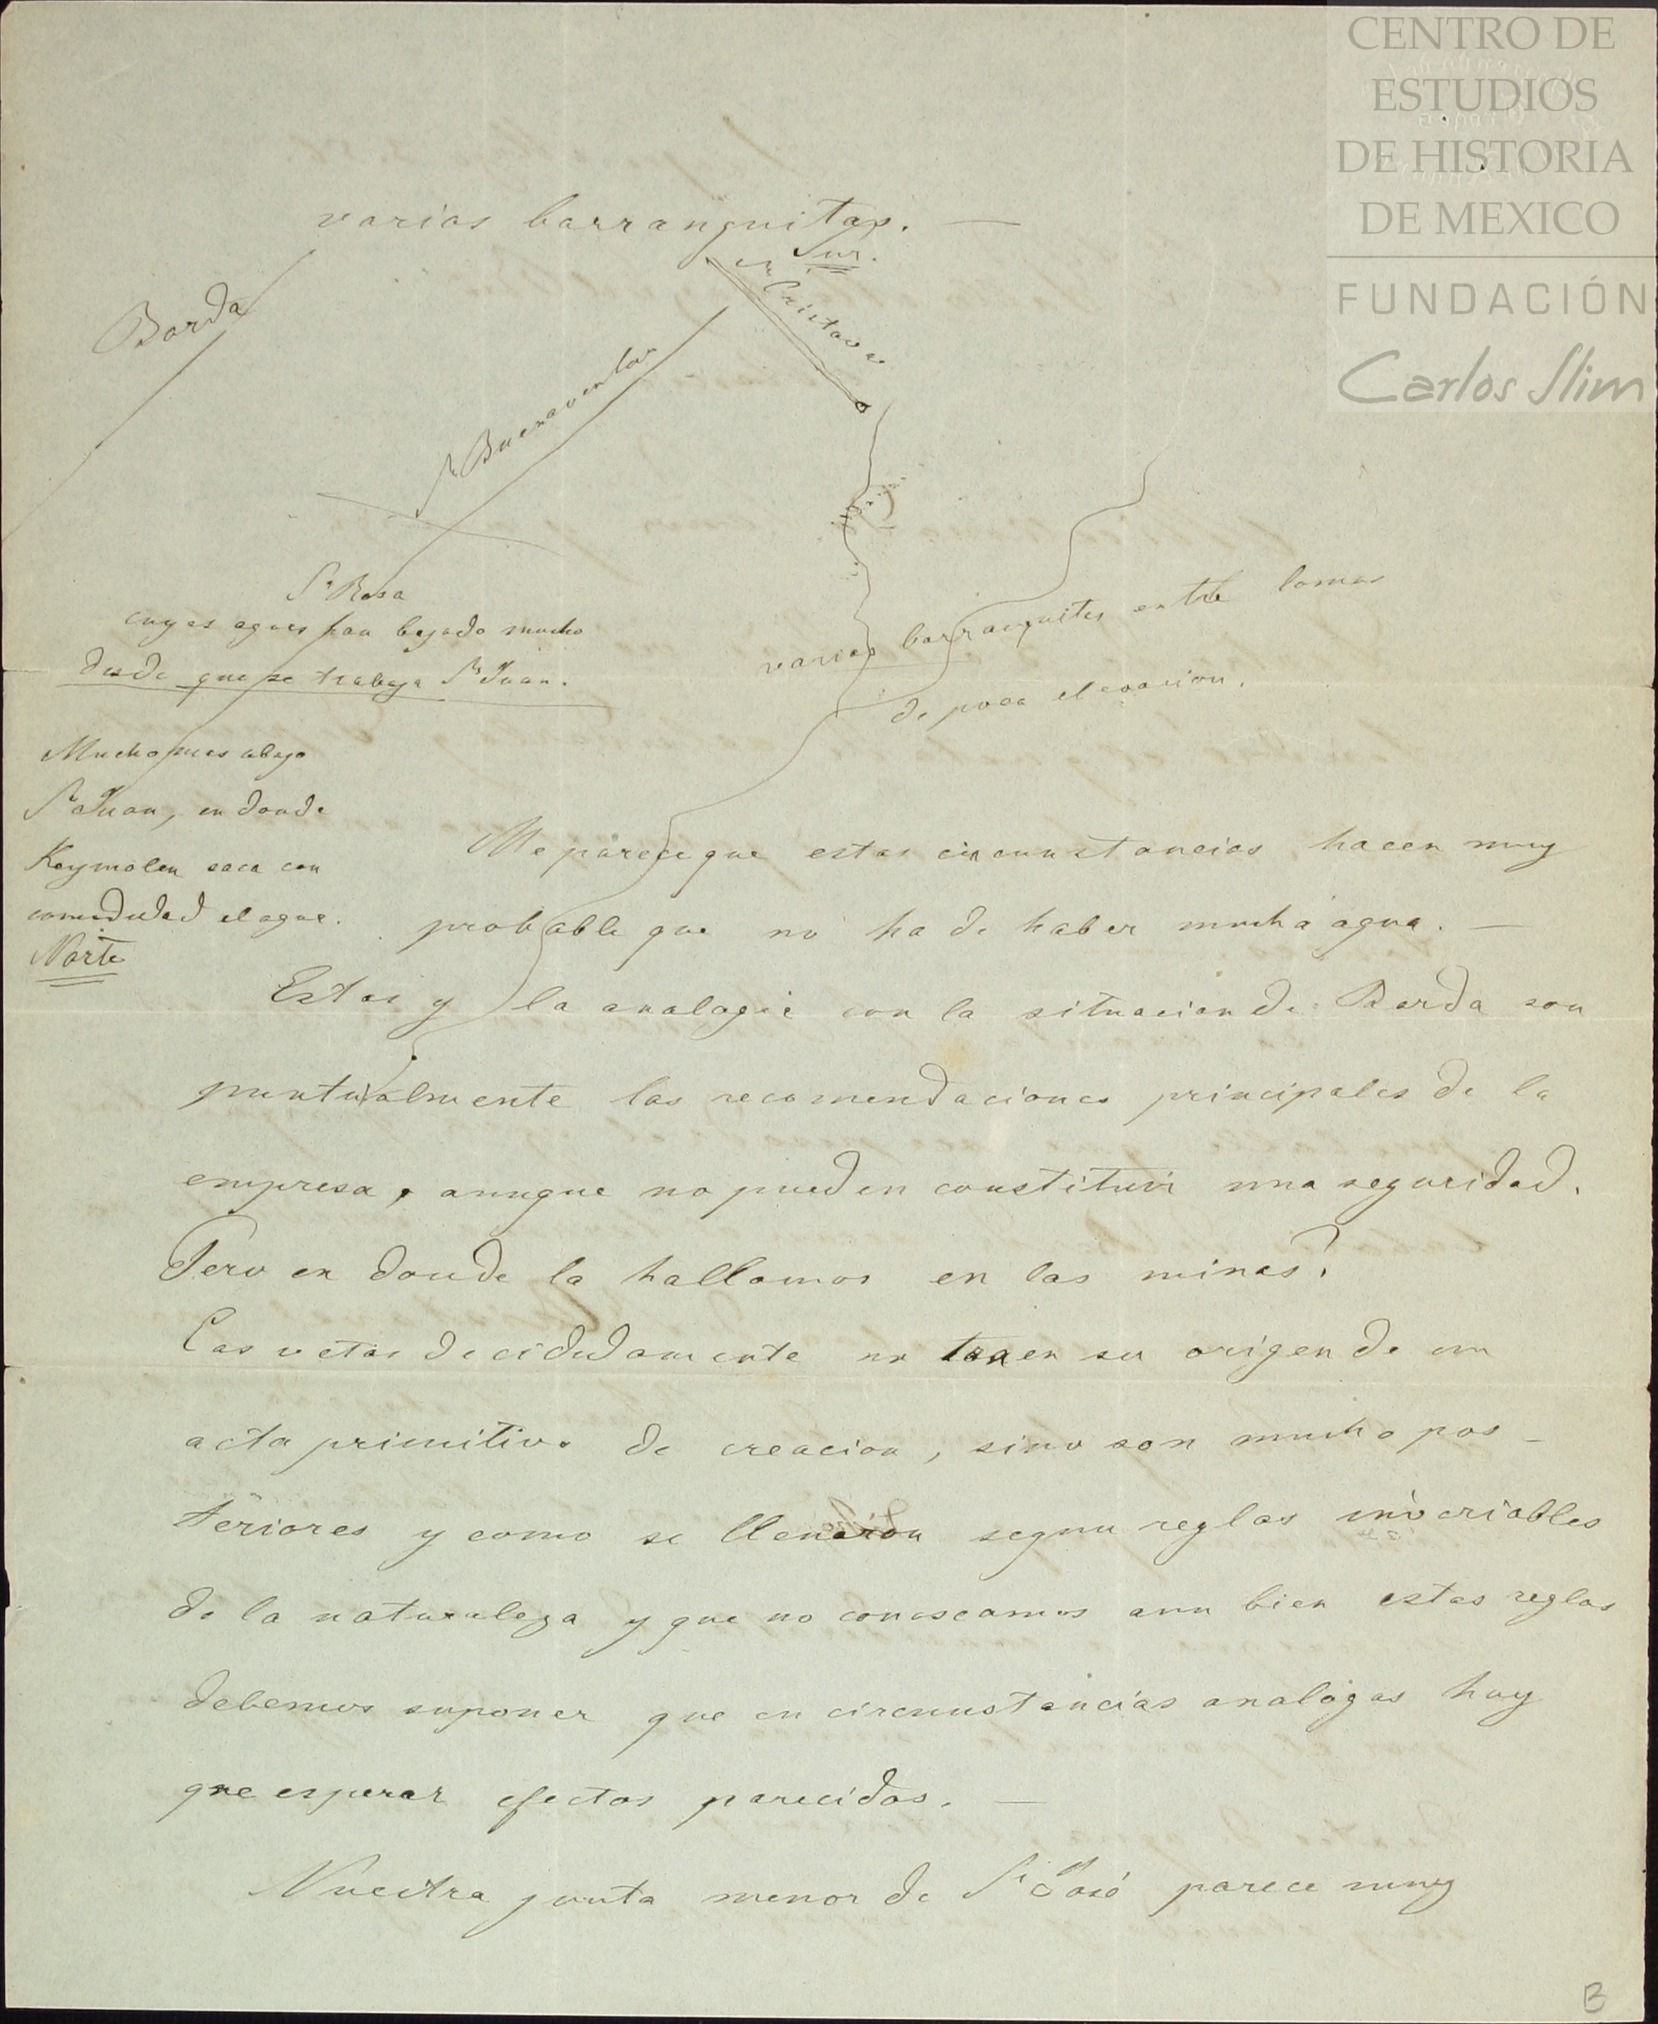 CENTRO DE
ESTUDIOS
DE HISTORIA
DE MEXICO
FUNDACIÓN
Carlos Slim
varias barranquitas. —
Sur.
Borda
Sn Buenaventur
Sn Cristoval
Sa Rosa
cuyas aguas han bajado mucho
desde que se trabaja Sn Juan.
varias barranquitas entre lomas
de poca elevacion.
Mucho mas abajo
Sn Juan, en donde
Keymolen saca con
comodidad el agua.
Norte
Me parece que estas circunstancias hacen muy
probable que no ha de haber mucha agua. —
Estas y la analogie con la situacion de Borda son
puntualmente las recomendaciones principales de la
empresa, aunque no pueden constituir una seguridad.
Pero en donde la hallamos en las minas?
Las vetas decididamente no traen su origen de un
acto primitivo de creacion, sino son mucho pos-
teriores y como se llenaron segun reglas invariables
de la naturaleza y que no conoscamos aun bien estas reglas
debemos suponer que en circunstancias analogas hay
que esperar efectos parecidos. —
Nuestra junta menor de Sn José parece muy
B